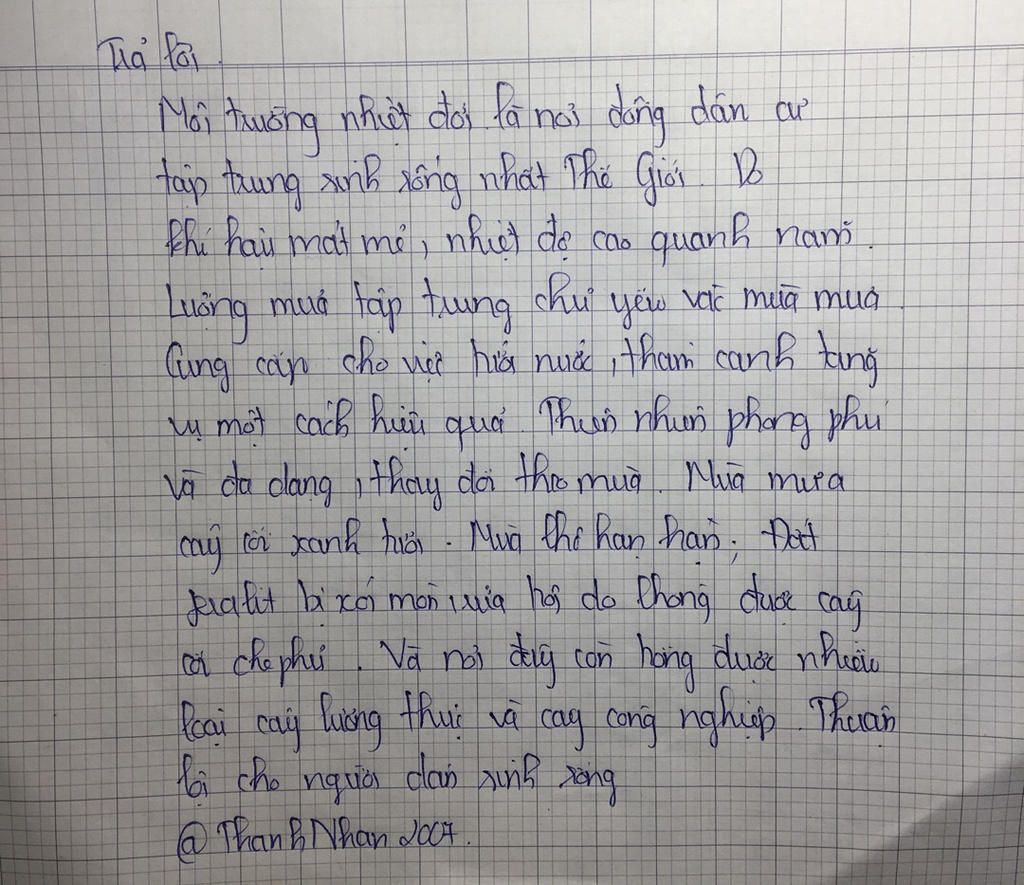 Trả lời.
Môi trường nhiệt đới là nơi đông dân cư
tập trung sinh sống nhất Thế Giới. Do
khí hậu mát mẻ, nhiệt độ cao quanh năm.
Lượng mưa tập trung chủ yếu vào mùa mưa.
Cung cấp cho việc tưới nước, tham canh tăng
vụ một cách hiệu quả. Thiên nhiên phong phú
và đa dạng, thay đổi theo mùa. Mùa mưa
cây cối xanh tươi. Mùa khô hạn hán, Đất
feralit bị xói mòn, rửa trôi do không được cây
cối che phủ. Và nơi đây còn trồng được nhiều
loại cây lương thực và cây công nghiệp. Thuận
lợi cho người dân sinh sống
@ Thanh Nhan 2007.